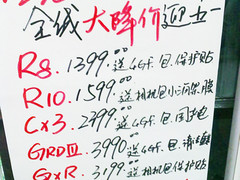 全线大降价迎五一
R8. 1399.00送4GF.包.保护贴
R10. 1599.00送相机包小河架膜
CX3. 2799.00送4GF.包.
GRDIII. 3990.00送4GF.包.
GXR. 3199.00送包保护贴